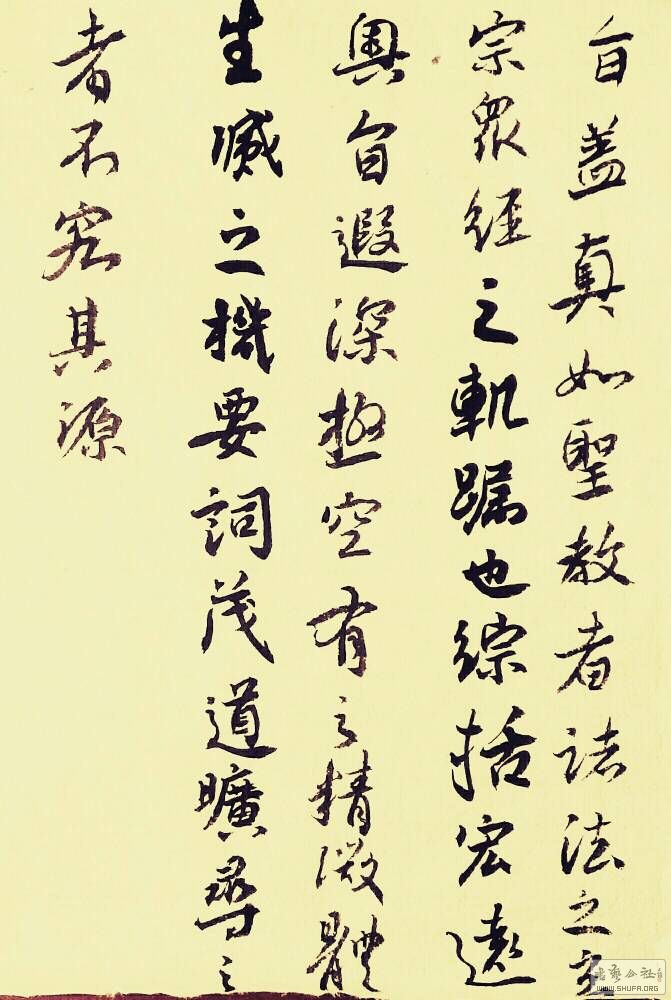 旨盖真如聖教者諸法之玄
宗眾經之軌躅也綜括宏遠
奧旨遐深極空有之精微體
生滅之機要詞茂道曠尋之
者不究其源
WWW.SHUFA.ORG